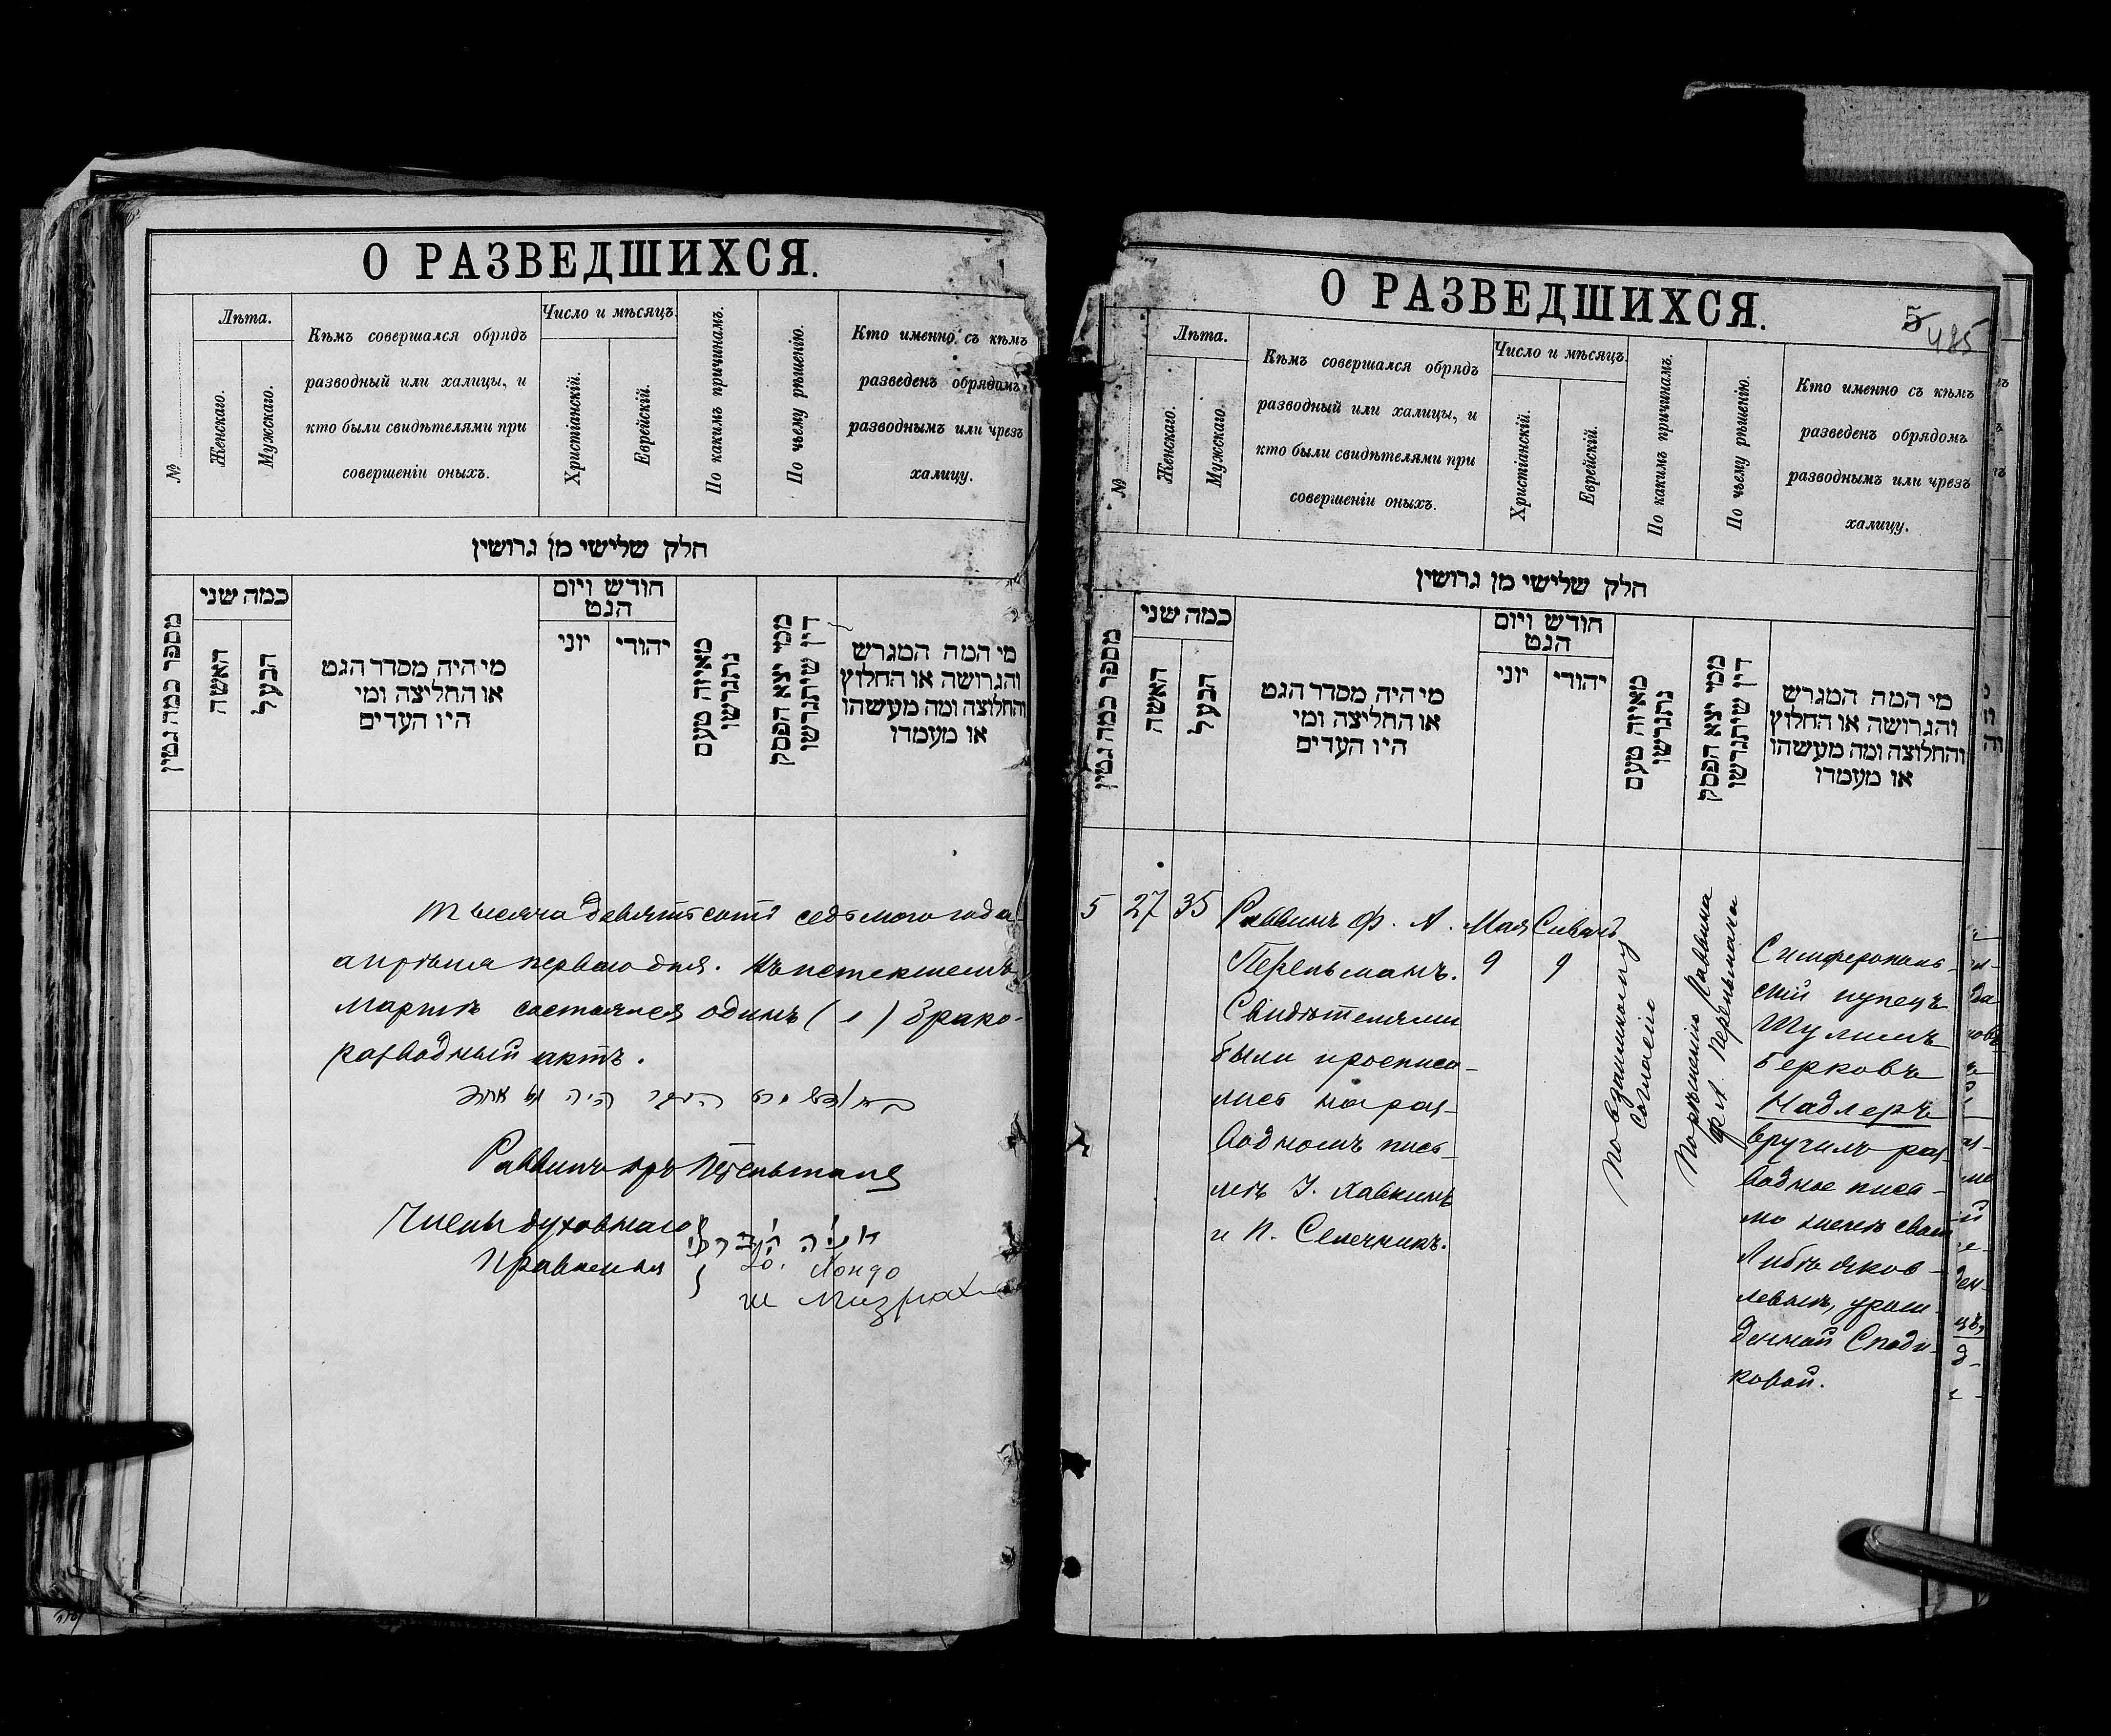 О РАЗВЕДШИХСЯ.
№
Лѣта.
Женскаго.
Мужскаго.
Кѣмъ совершался обрядъ
разводный или халицы, и
кто были свидѣтелями при
совершеніи оныхъ.
Число и мѣсяцъ.
Христіанскій.
Еврейскій.
По какимъ причинамъ.
По чьему рѣшенію.
Кто именно съ кѣмъ
разведенъ обрядомъ
разводнымъ или чрезъ
халицу.
חלק שלישי מן גרושין
מספר כמה גטין
כמה שני
האשה
הבעל
מי היה מסדר הגט
או החליצה ומי
היו העדים
חודש ויום
הגט
יוני
יהודי
מאיזה טעם
נתגרשו
ממי יצא הפסק
דין שיתגרשו
מי המה המגרש
והגרושה או החלוץ
והחלוצה ומה מעשהו
או מעמדו
Тысяча девятьсотъ седьмого года
апрѣля перваго дня. Въ истекшемъ
мартѣ состоялся одинъ (1) брако-
разводный актъ.
היה
Раввинъ
Члены духовнаго
Правленія
Ю. Хондо
Ш Мизрахи
О РАЗВЕДШИХСЯ.
5
485
№
Лѣта.
Женскаго.
Мужскаго.
Кѣмъ совершался обрядъ
разводный или халицы, и
кто были свидѣтелями при
совершеніи оныхъ.
Число и мѣсяцъ.
Христіанскій.
Еврейскій.
По какимъ причинамъ.
По чьему рѣшенію.
Кто именно съ кѣмъ
разведенъ обрядомъ
разводнымъ или чрезъ
халицу.
חלק שלישי מן גרושין
מספר כמה גטין
כמה שני
האשה
הבעל
מי היה מסדר הגט
או החליצה ומי
היו העדים
חודש ויום
הגט
יוני
יהודי
מאיזה טעם
נתגרשו
ממי יצא הפסק
דין שיתגרשו
מי המה המגרש
והגרושה או החלוץ
והחלוצה ומה מעשהו
או מעמדו
5
27
35
Раввинъ Ф. А.
Перельманъ.
Свидѣтелями
были и росписа-
лись на раз-
водномъ пись-
мѣ І. Хавкинъ
и П. Селечникъ.
Мая
9
Сиванъ
9
По взаимному
согласію
По рѣшенію Раввина
Ф. А. Перельмана
Симферополь-
скій купецъ
Шулимъ
Берковъ
Надлеръ
вручилъ раз-
водное пись-
мо женѣ своей
Либѣ Яков-
левнѣ, урож-
денной Споди-
ковой.